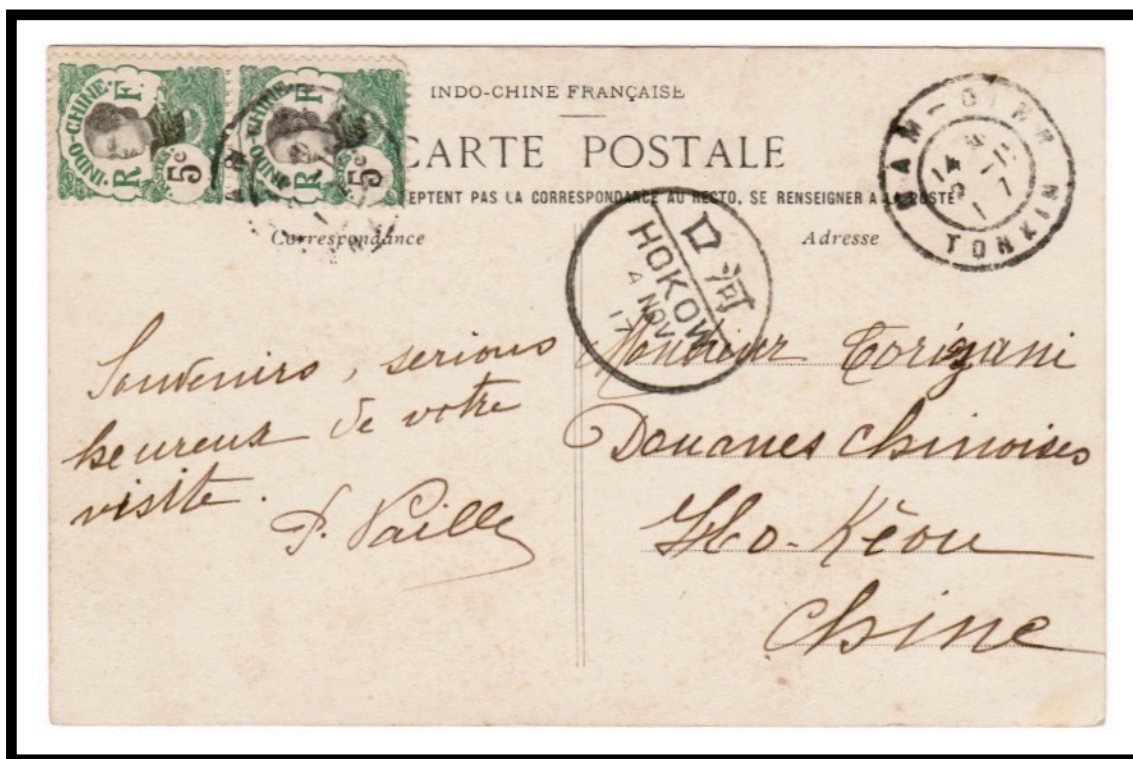 INDO-CHINE
R F
5c
INDO-CHINE
R F
5c
INDO-CHINE FRANÇAISE
CARTE POSTALE
EPTENT PAS LA CORRESPONDANCE AU RECTO, SE RENSEIGNER A LA POSTE
Correspondance
Adresse
NAM-DINH
TONKIN
口河
HOKOW
4 NOV
17
Souvenirs, serions
heureux de votre
visite.
P. Paille
Monsieur
Douanes Chinoises
Ho-Kéou
Chine